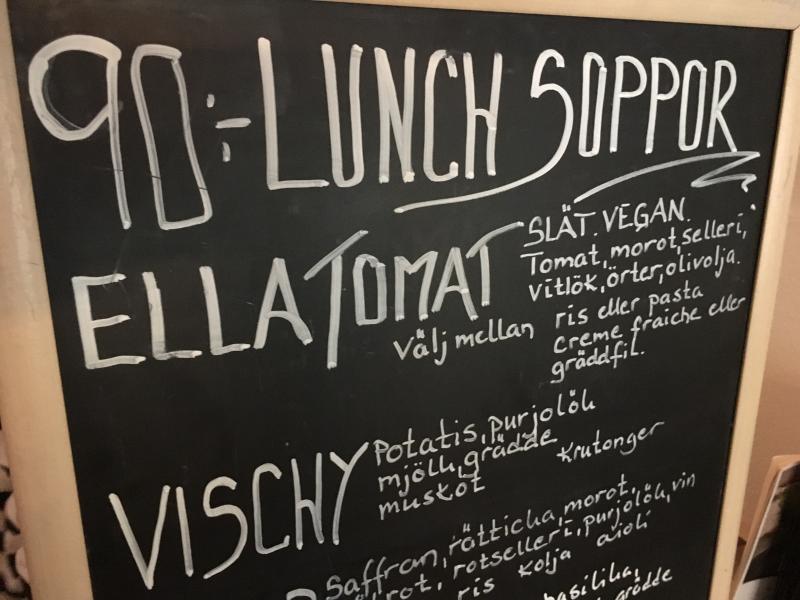 90:- LUNCH SOPPOR
ELLA TOMAT
SLÄT. VEGAN.
Tomat, morot, selleri,
vitlök, örter, olivolja.
Välj mellan ris eller pasta
creme fraiche eller
gräddfil.
VISCHY
Potatis, purjolök
mjölk, grädde
muskot
Krutonger
Saffran, rätticka, morot,
rot, rotselleri, purjolök, vin
ris kolja aioli
basilika,
grädde